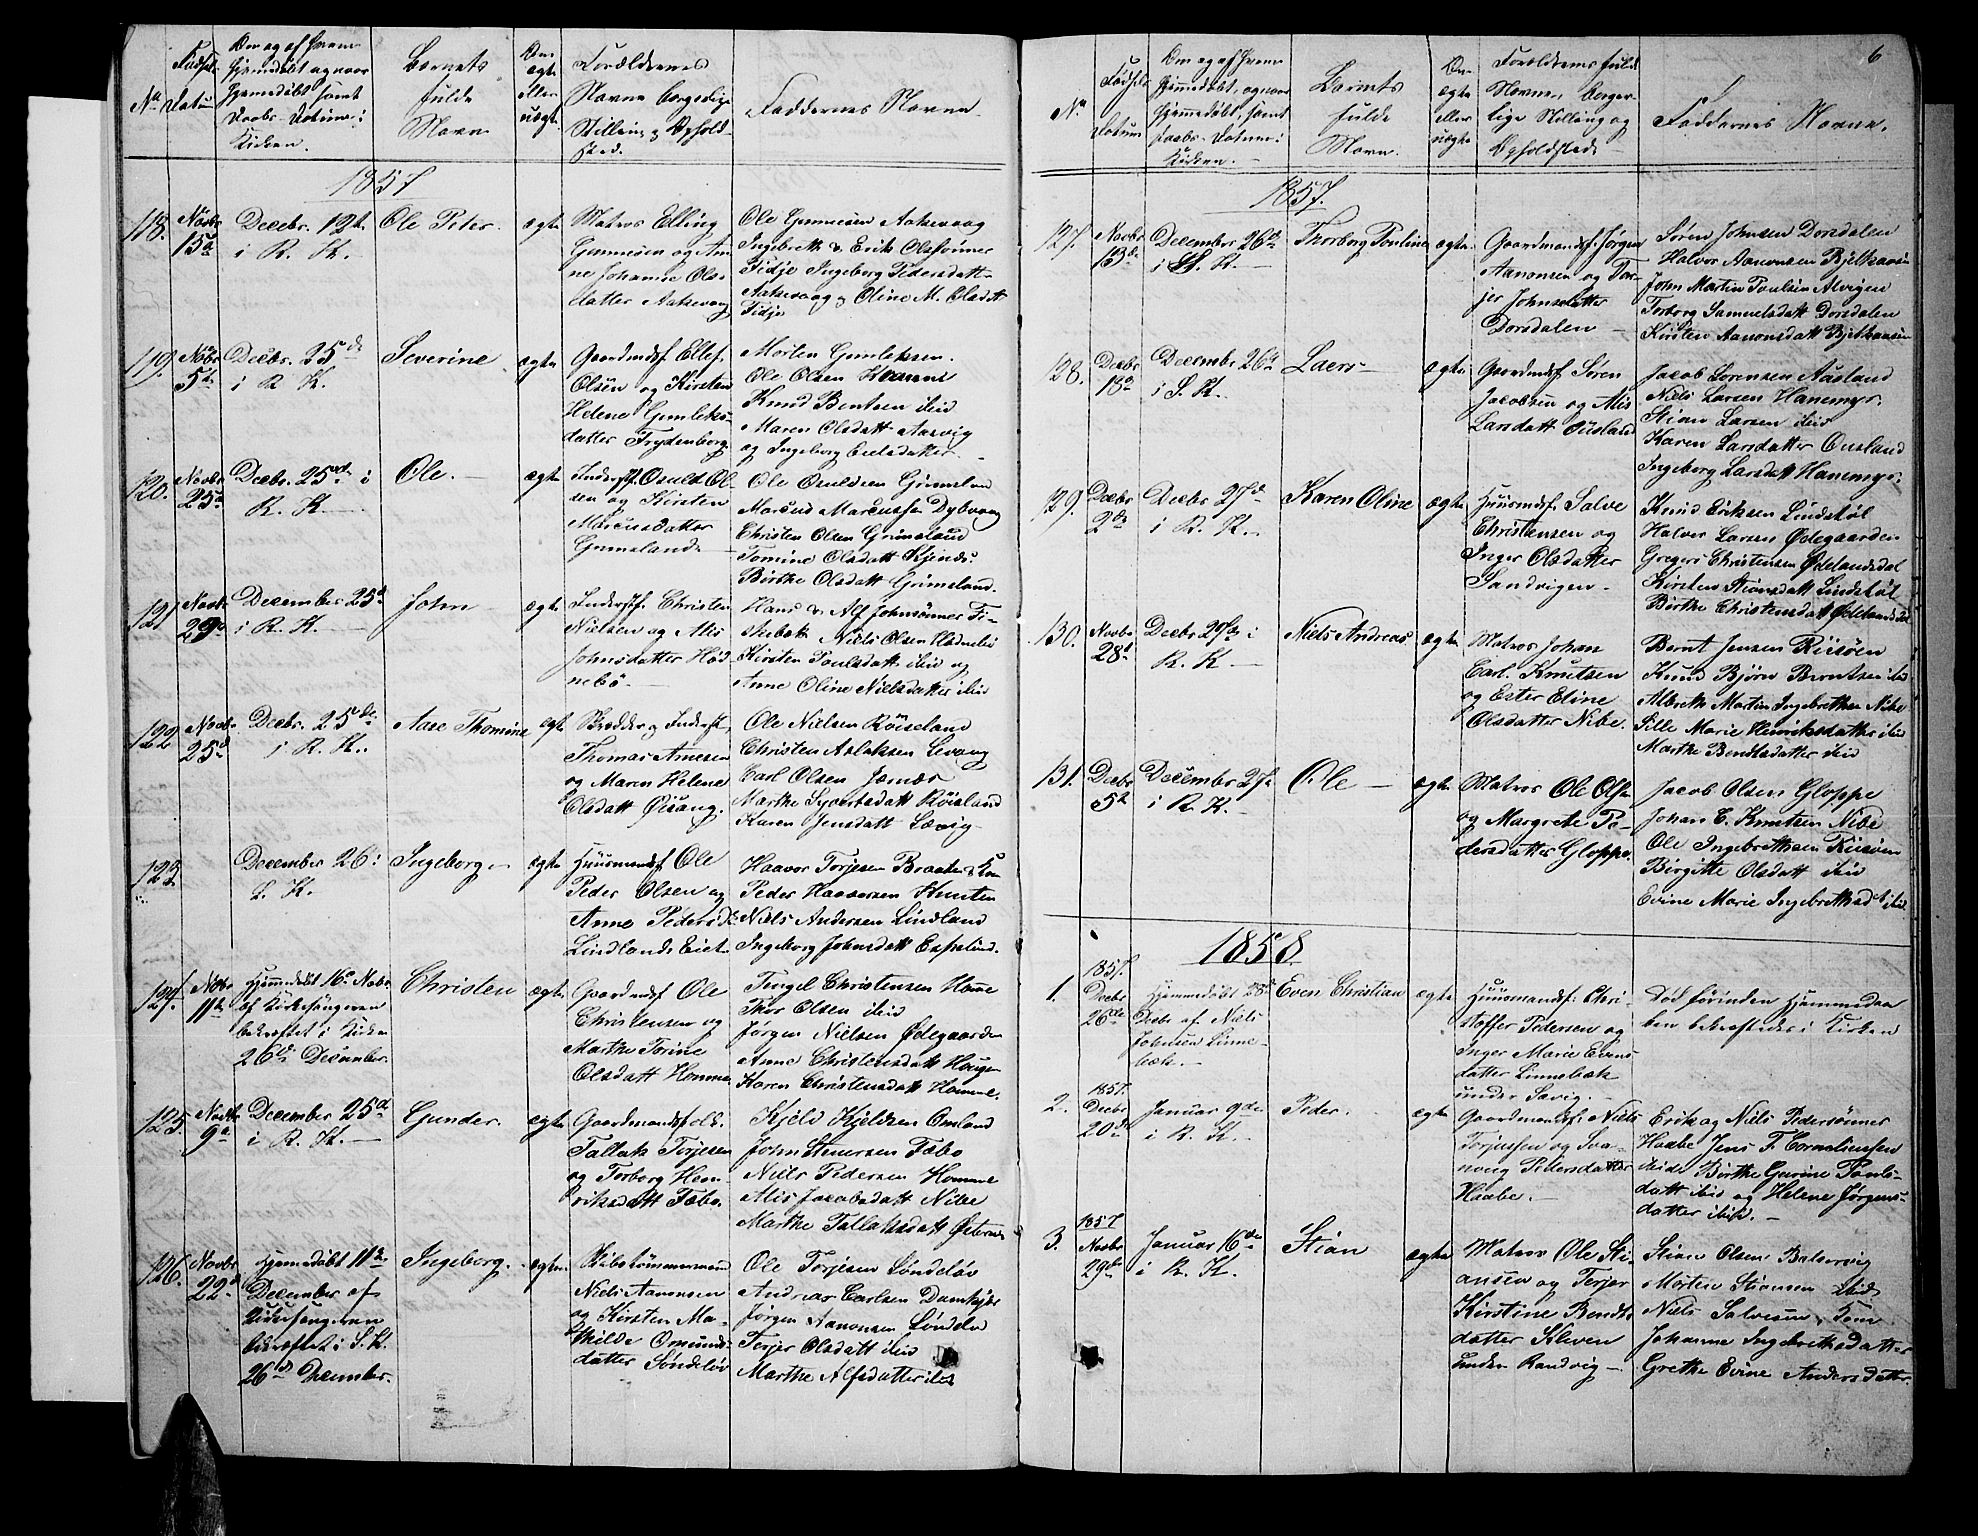 No
Fødsels
Datum
Børnets
fulde
Navn
ægte
eller
uægte
Forældrenes
Navne borgerlige
Stilling og Ophold-
sted.
Faddernes Navne
1857
118.
Novbr
15de
Decebr. 12te
i R. K.
Ole Peter.
ægte
Matros Elling
Gunnesen og An-
ne Johanne Ols-
datter
Ole Gunnesen
Ingebreth & Erik Olssønner
Fidje Ingeborg Pedersdatt
& Oline M. Olsdatt
Fidje
119.
Novbr
5te
Decbr. 25de
i R. K.
Severine
ægte
Gaardmdsf. Ellef
Olsen og Kirsten
Helene Gunleks-
datter Frydenborg
Morten Gunleksen
Ole Olsen
Knud Bentsen ibid
Maren Olsdatt Aasvig
og Ingeborg
120.
Novbr
25de
Decbr. 25de i
R. K.
Ole.
ægte
Inderstf. Osuld Ol-
sen og Kirsten
Marcusdatter
Grimsland
Ole Osuldsen Grimsland
Marcus Marcussen Dybvaag
Christen Olsen Grimsland
Tomine Olsdatt
Børthe Olsdatt Grimsland.
121
Novbr
29de
December 25de
i R. K.
John
ægte
Inderstf. Christen
Nielsen og Alis
Johnsdatter Hød-
nebø
Hans & Alf Johnsønner Fi-
Niels Olsen
Kirsten Poulsdatt ibid og
Anne Oline Nielsdatter ibid
122
Novbr
25de
Decbr. 25de
i R. K.
Aase Thomine
ægte
Skrædder & Inderstf.
Thomas Arnesen
og Maren Helene
Olsdatt Øisang.
Ole Nielsen Røiseland
Christen Aslaksen Levang
Carl Olsen Jernæs
Marthe Syvertsdatt Røisland
Karen Jensdatt Lævig
123.
December 26 i
S. K.
Ingeborg
ægte
Huusmandsf. Ole
Peder Olsen og
Anne Pedersd.
Lindlands Eiet
Haavor Torjesen Braaten
Peder Haavorsen
Niels Andersen Lindland
Ingeborg Johnsdatt Espelind.
124.
Novbr
11te
Hjemmedøbt 16de Novbr
af Kirkesangeren
bekræftet i Kirken
26de December.
Christen
ægte
Gaardmdsf Ole
Christensen og
Marthe Torine
Olsdatt Homme
Tengel Christensen Homme
Thor Olsen ibid
Jørgen Nielsen Ødegaarden
Anne Christensdatt Haugen
Karen Christensdatt Homme.
125.
Novbr
9de
December 25de
i R. K.
Gunder
ægte
Gaardmandsfolk
Tallak Torjesen
og Torborg Hen-
riksdatt Fæbo.
Kjeld Kjeldsen Omland
John Steenersen Fæbo
Niels Pedersen Homme
Alis Jacobsdatt Nibe
Marthe Tallaksdatt
126.
Novbr
22de
Hjemmedøbt 11te
December af
Kirkesangeren
bekræftet i S. K.
26de December.
Ingeborg.
ægte
Skibstømmermand
Niels Aanonsen
og Kirsten Ma-
thilde Omunds-
datter Søndeløv
Ole Torjesen Søndeløv
Andreas Carlsen
Jørgen Aanonsen Søndeløv
Terjer Olsdatt ibid
Marthe Alfsdatter ibid
6
No
Fødsels
Datum
Børnets
fulde
Navn.
ægte
eller
uægte
Forældrenes fulde
Navne, borger-
lige Stilling og
Opholdsted
Faddernes Navne.
1857.
127.
Novbr
13de
December 26de
i S. K.
Thorborg Pouline
ægte
Gaardmandsf. Jørgen
Aanonsen og Ter-
jer Johnsdatter
Dorsdalen
Søren Johnsen Dorsdalen
Halvor Aanonsen
John Martin Poulsen Alvigen
Torborg Samuelsdatt Dorsdalen
Kirsten Aanonsdatt
128.
Decbr
18de
December 26de
i S. K.
Laers
ægte
Gaardmdsf. Søren
Jacobsen og Alis
Larsdatt Ousland
Jacob Sørensen Ausland
Niels Larsen Hanemyr.
Stian Larsen ibid
Karen Larsdatter Ousland
Ingeborg Larsdatt Hanemyr.
129.
Decbr
2de
Decbr 27de
i R. K.
Karen Oline
ægte
Huusmdsf. Salve
Christensen og
Inger Olsdatter
Sandvigen
Knud Eriksen Lindstøl
Halvor Larsen Ødegaarden
Gregers Christensen Ødelandsdal
Kirsten Stiansdatt Lindstøl
Birthe Christensdatt
130.
Novbr
28de
Decbr 27de i
R. K.
Niels Andreas
ægte
Matros Johan
Carl Knutsen
og Ester Eline
Olsdatter Nibe.
Bernt Jensen Riisøen
Knud Bjørn Berntsen ibid
Albreth Martin Ingebrethsen Nibe
Sille Marie Henriksdatter ibid
Marthe Bendtsdatter ibid
131.
Decbr
5te
December 27de
i R. K.
Ole
ægte
Matros Ole Olsen
og Margrete Pe-
dersdatter Gloppe.
Jacob Olsen Gloppe
Johan C. Knutsen Nibe
Ole Ingebrethsen Riisøen
Birgitte Olsdatt ibid
Evine Marie Ingebrethsdt ibid
1858
1.
1857.
Decbr
26de
Hjemmedøbt 28de
Decbr af Niels
Johnsen Linne-
bæk.
Even Christian
ægte
Huusmandsf: Chri-
stoffer Pedersen og
Inger Marie Evens-
datter Linnebæk
under Savig.
Død førinden Hjemmedaa-
ben bekræftedes i Kirken
2.
1857.
Decbr
20de
Januar 9de
i R. K.
Peder.
ægte
Gaardmandsf: Niels
Torjussen og Sva-
novig Pedersdatter
Haabe.
Erik og Niels Pedersønner
Haabe Jens T. Corneliussen
ibid Børthe Gurine Pouls-
datt ibid og Helene Jørgens-
datter ibid.
3.
1857
Novbr
29de
Januar 16de
i R. K.
Stian
ægte
Matros Ole Sti-
ansen og Terjer
Kirstine Bendts-
datter
under Randvig
Stian Olsen
Morten Stiansen ibid
Niels Salvesen
Johanne Ingebrethsdatter
Grethe Evine Andersdatter.